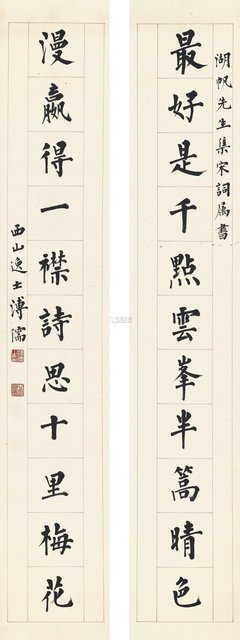 湖帆先生集宋詞属書
最好是千點雲峯半篙晴色
漫嬴得一襟詩思十里梅花
西山逸士溥儒